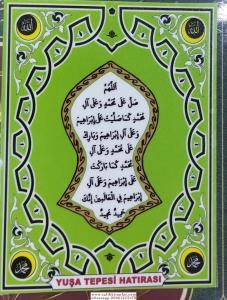 الله
الله
اللّٰهُمَّ
صَلِّ عَلَى مُحَمَّدٍ وَعَلَى آلِ
مُحَمَّدٍ كَمَا صَلَّيْتَ عَلَى إِبْرَاهِيمَ
وَعَلَى آلِ إِبْرَاهِيمَ وَبَارِكْ
عَلَى مُحَمَّدٍ وَعَلَى آلِ
مُحَمَّدٍ كَمَا بَارَكْتَ
عَلَى إِبْرَاهِيمَ وَعَلَى آلِ
إِبْرَاهِيمَ فِي الْعَالَمِينَ إِنَّكَ
حَمِيدٌ مَجِيدٌ
محمد
محمد
YUŞA TEPESİ HATIRASI